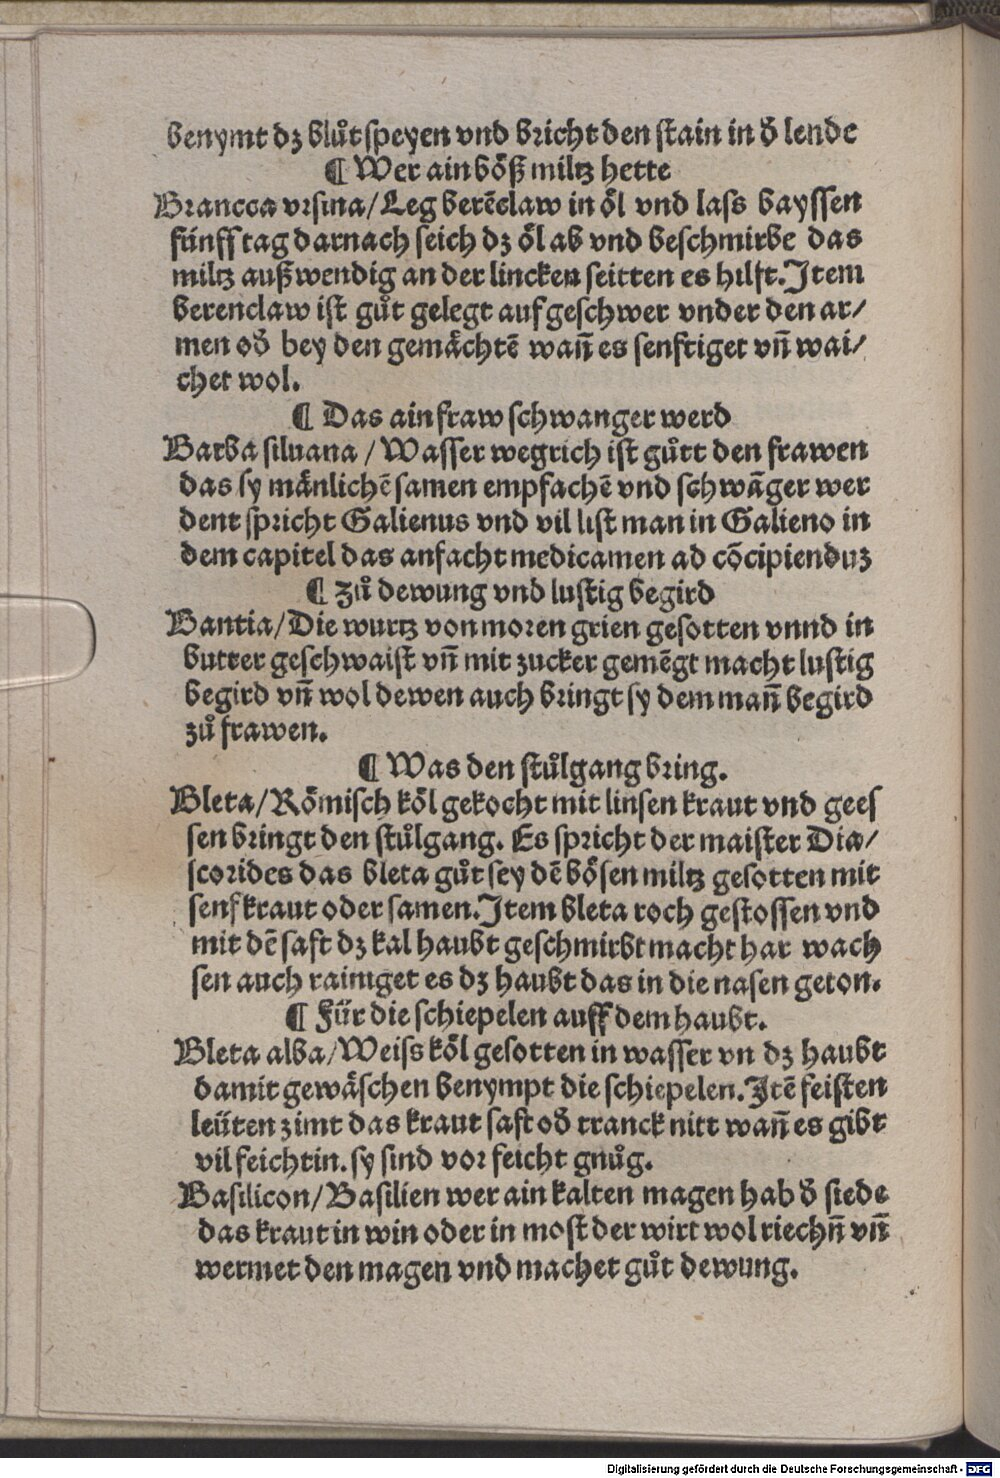 benymt dz blůt speyen vnd bricht den stain in d̕ lende
¶ Wer ain böß miltz hette
Brancca vrsina/Leg berēclaw in öl vnd lass bayssen
fünff tag darnach seich dz öl ab vnd beschmirbe das
miltz außwendig an der lincken seitten es hilft. Jtem
berenclaw ist gůt gelegt auf geschwer vnder den ar/
men od̕ bey den gemächtē wañ es senftiget vñ wai/
chet wol.
¶ Das ain fraw schwanger werd
Barba siluana /Wasser wegrich ist gůtt den frawen
das sy mänlichē samen empfachē vnd schwāger wer
dent spricht Galienus vnd vil list man in Galieno in
dem capitel das anfacht medicamen ad cōcipienduz
¶ Zů dewung vnd lustig begird
Bantia/Die wurtz von moren grien gesotten vnnd in
butter geschwaist vñ mit zucker gemēgt macht lustig
begird vñ wol dewen auch bringt sy dem mañ begird
zů frawen.
¶ Was den stůlgang bring.
Bleta/Römisch köl gekocht mit linsen kraut vnd gees
sen bringt den stůlgang. Es spricht der maister Dia/
scorides das bleta gůt sey dē bösen miltz gesotten mit
senfkraut oder samen. Jtem bleta roch gestossen vnd
mit dē saft dz kal haubt geschmirbt macht har wach
sen auch rainiget es dz haubt das in die nasen geton.
¶ Für die schiepelen auff dem haubt.
Bleta alba/Weiss köl gesotten in wasser vn dz haubt
damit gewäschen benympt die schiepelen. Jtē feisten
leüten zimt das kraut saft od̕ tranck nitt wañ es gibt
vil feichtin. sy sind vor feicht gnůg.
Basilicon/Basilien wer ain kalten magen hab d̕ siede
das kraut in win oder in most der wirt wol riechñ vñ
wermet den magen vnd machet gůt dewung.
Digitalisierung gefördert durch die Deutsche Forschungsgemeinschaft - DFG